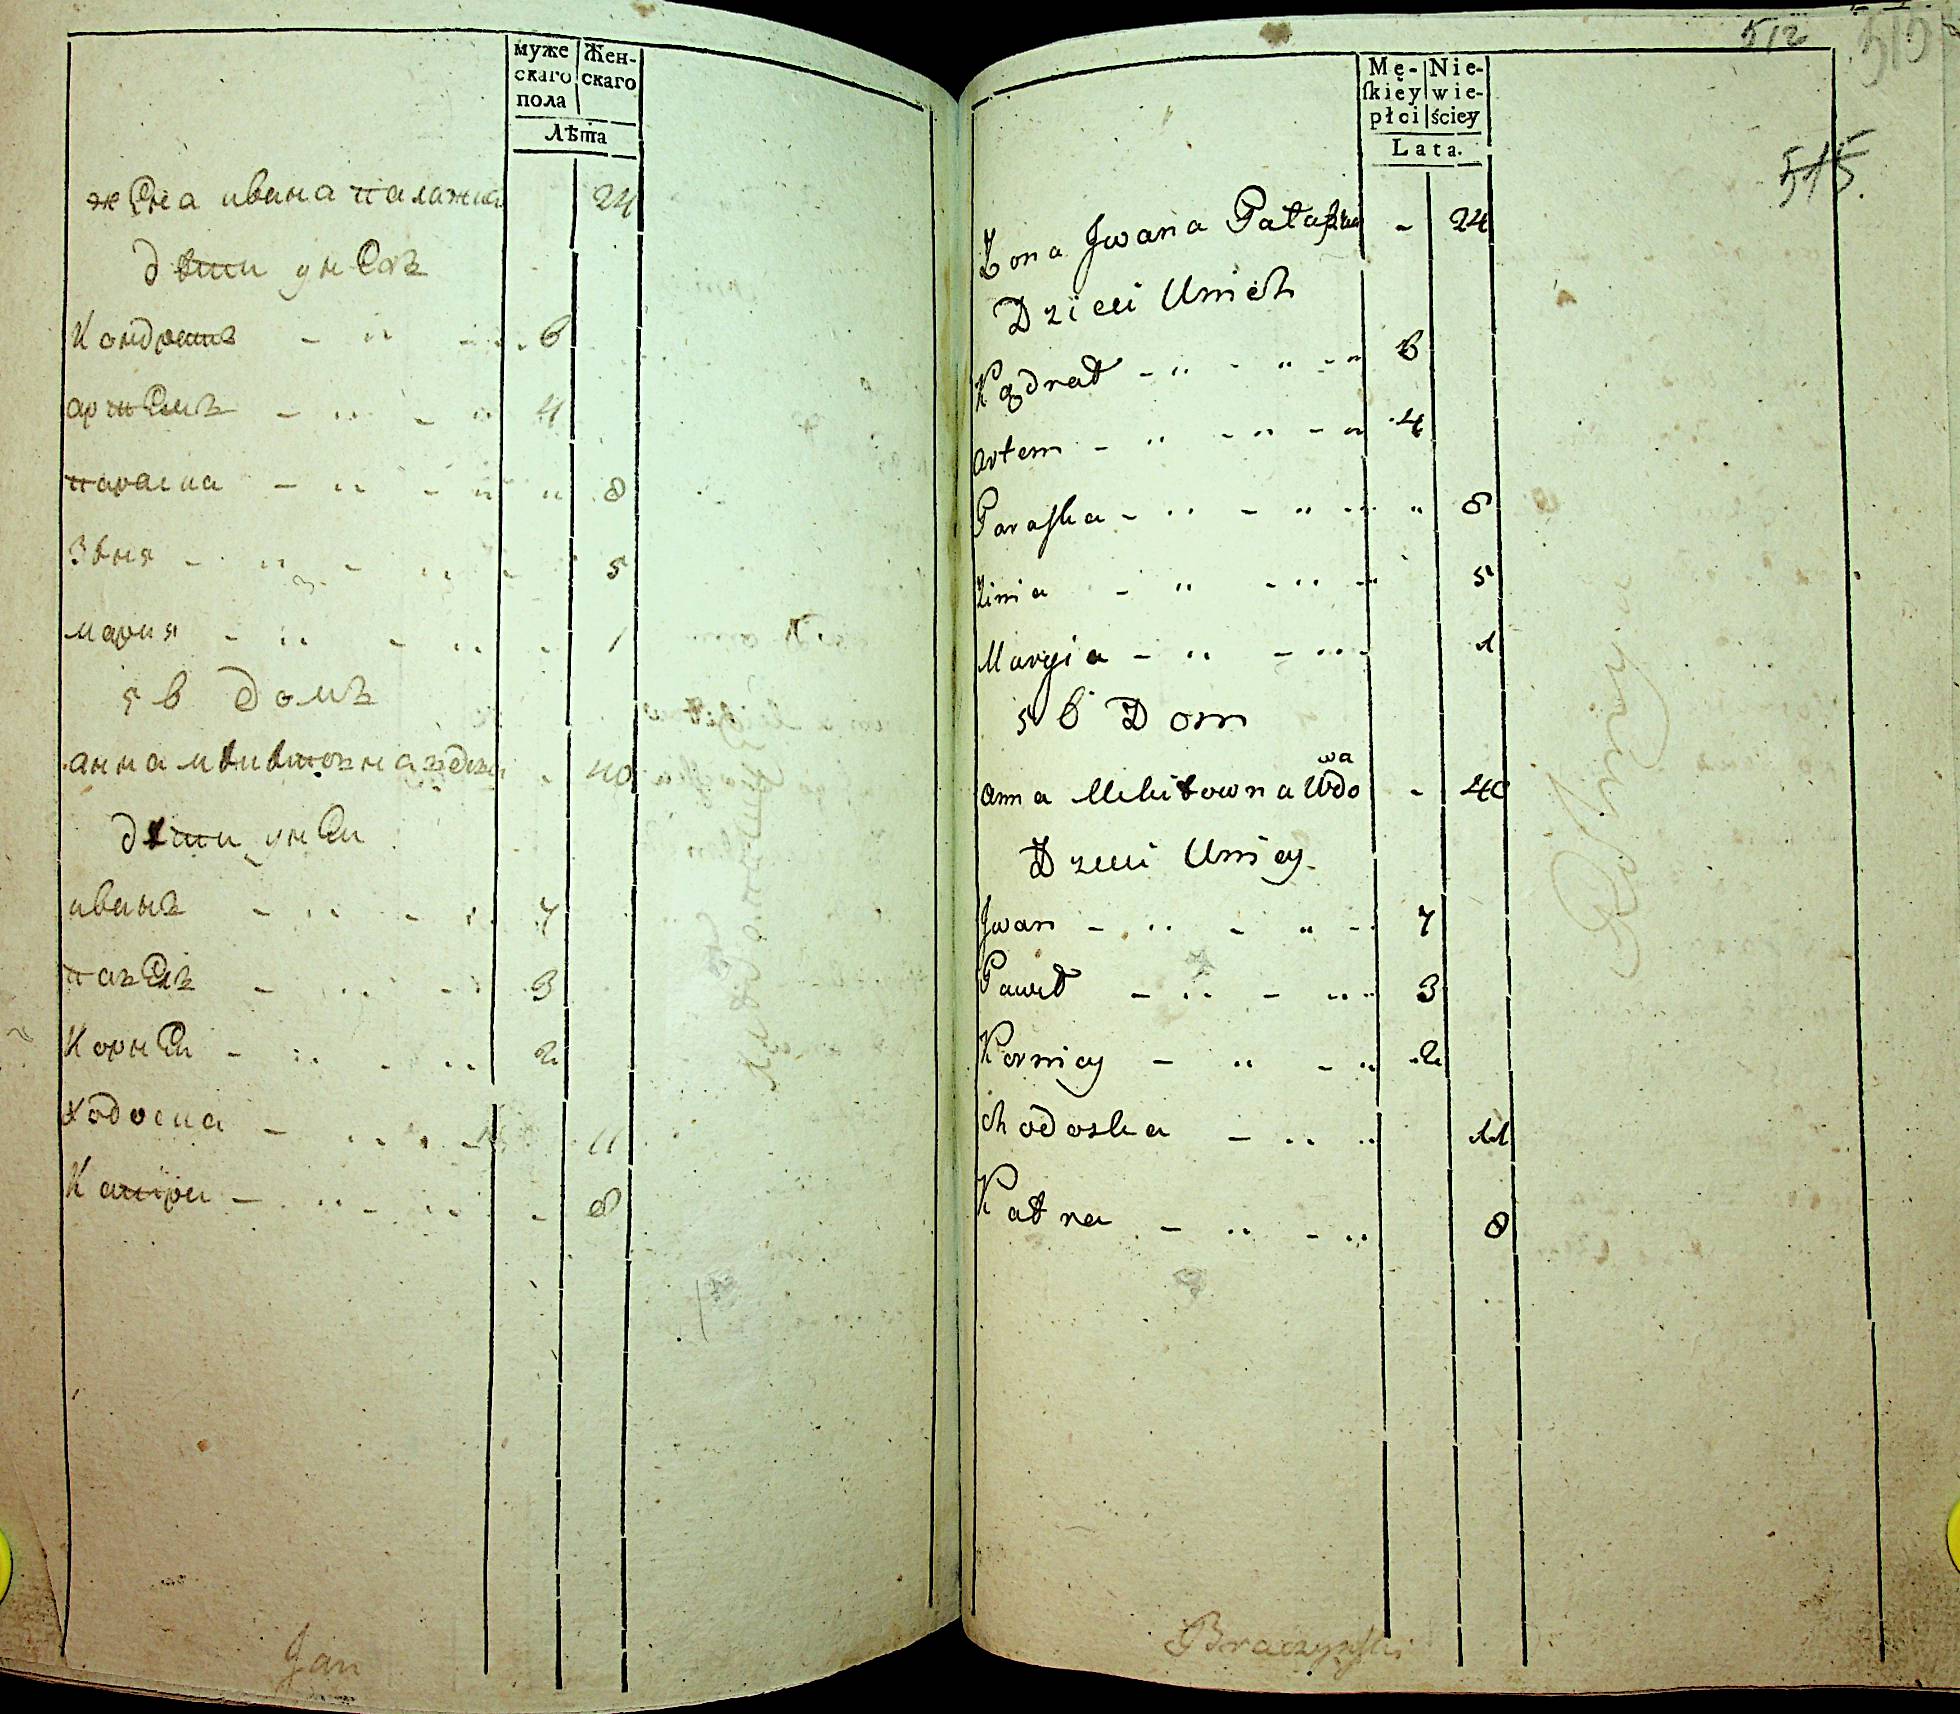 муже Жен-
скаго скаго
пола
Лѣта
жена ивана палажка 24
дѣти унехъ
Кондратъ - ,, - ,, 6
артемъ - ,, - ,, 4
параска - ,, - ,, ,, 8
Зѣня - ,, - ,, - 5
мария - ,, - ,, - 1
5 6 домъ
анна мѣкѣтовна вдова - 40
дѣти унеи
иванъ - ,, - ,, 7
павелъ - ,, - ,, 3
Корнеи - ,, - ,, 2
ходоска - ,, - 11
Катри - ,, - ,, - 8
Jan
512
515.
Mę- Nie-
skiey wie-
płci ściey
Lata.
Zona Jwana Pałaszka - 24
Dzieci Unich
Kądrat - ,, - ,, - ,, 6
artem - ,, - ,, - ,, 4
Paraska - ,, - ,, - ,, ,, 8
Zinia - ,, - ,, - 5
Maryia - ,, - ,, - 1
5 6 Dom
anna Mikitowna Wdowa - 40
Dzieci Uniey
Jwan - ,, - ,, - 7
Paweł - ,, - ,, 3
Korniey - ,, - ,, 2
chodoska - ,, ,, 11
Katra - ,, - ,, 8